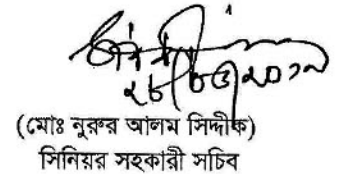 ২৮/০৩/২০১৭
(মোঃ নুরুর আলম সিদ্দীক)
সিনিয়র সহকারী সচিব